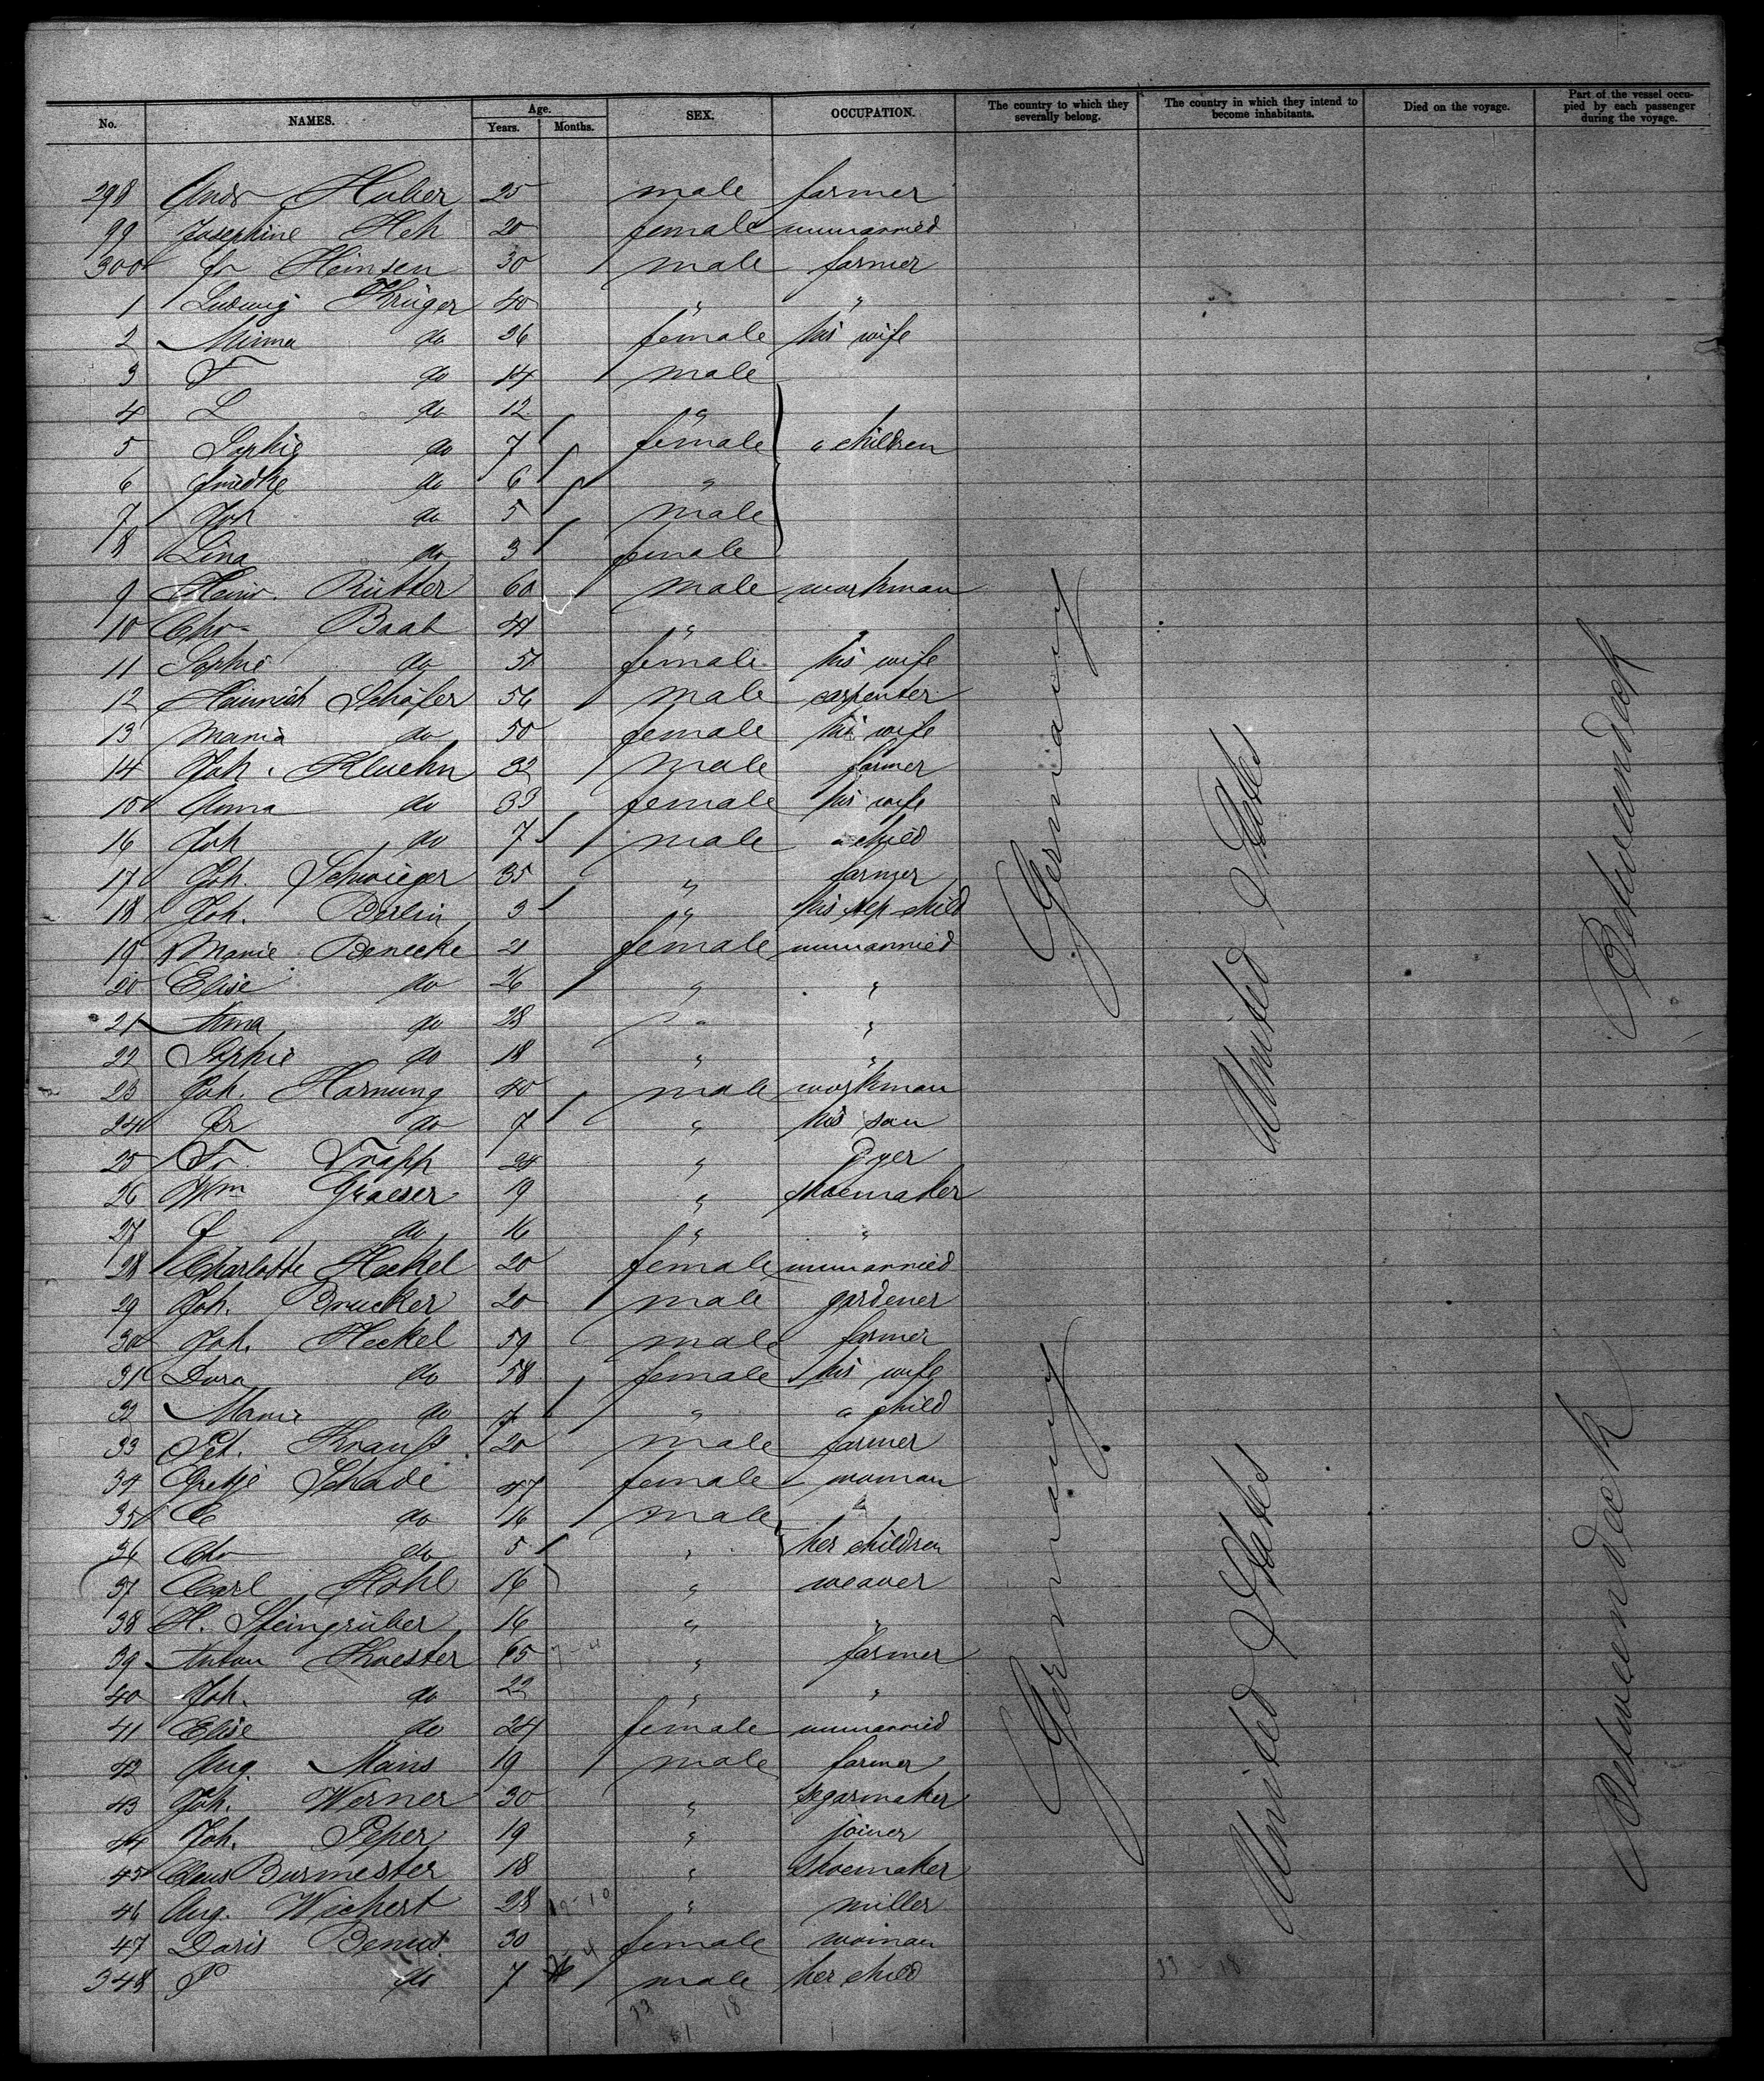 No. NAMES. Age. Years. Months. SEX. OCCUPATION. The country to which they severally belong. The country in which they intend to become inhabitants. Died on the voyage. Part of the vessel occupied by each passenger during the voyage.
298 Andr Huber 25 male farmer
99 Josephine Heh 20 female unmarried
300 fr Heinsen 30 male farmer
1 Ludwig Krüger 40 " "
2 Minna do 26 female his wife
3 F do 14 male
4 L do 12 "
5 Sophie do 7 female " children
6 Friedke do 6 "
7 Joh do 5 male
8 Lina do 3 female
9 Heinr. Rütter 60 male workman
10 Chr Baab 41 " "
11 Sophie do 51 female his wife
12 Heinrich Schäfer 56 male carpenter
13 Maria do 50 female his wife
14 Joh. Kluehn 32 male farmer
15 Anna do 33 female his wife
16 Joh do 7 male " child
17 Joh. Schwieger 35 " farmer
18 Joh. Berlin 3 " his step child
19 Marie Benecke 21 female unmarried
20 Elise do 26 " "
21 Anna do 28 " "
22 Sophie do 18 " "
23 Joh. Hornung 40 male workman
24 Fr do 7 " his son
25 Fr. Trapp 24 " Dyer
26 Wm Graeser 19 " shoemaker
27 F do 16 " "
28 Charlotte Heckel 20 female unmarried
29 Joh. Drucker 20 male gardener
30 Joh. Heckel 59 male farmer
31 Dora do 58 female his wife
32 Marie do 7 " " child
33 Pet. Krauß 20 male farmer
34 Gretje Schade 47 female woman
35 C do 16 male "
36 Chr do 5 " her children
37 Carl Höhl 16 " weaver
38 H. Steingrüber 16 " "
39 Anton Khoester 65 " farmer
40 Joh. do 22 " "
41 Elise do 24 female unmarried
42 Aug. Mains 19 male farmer
43 Joh. Werner 30 " segarmaker
44 Joh. Peper 19 " joiner
45 Claus Burmester 18 " shoemaker
46 Aug. Wichert 28 " miller
47 Doris Benut 30 female woman
348 P do 7 male her child
Germany
United States
Betweendeck
Germany
United States
Betweendeck
33 18